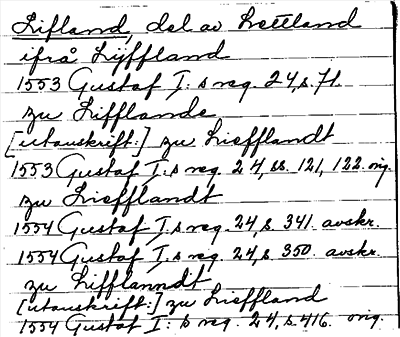 Lifland, del av Lettland
ifrå Lijffland
1553 Gustaf I:s reg. 24, s. 71.
zu Lifflande
[utanskrift:] zu Liefflandt
1553 Gustaf I:s reg. 24, ss. 121, 122. orig.
zu Liefflandt
1554 Gustaf I,s reg. 24, s. 341. avskr.
1554 Gustaf I,s reg. 24, s. 350. avskr.
zu Lifflanndt
[utanskrift:] zu Lieffland
1554 Gustaf I:s reg. 24, s. 416. orig.